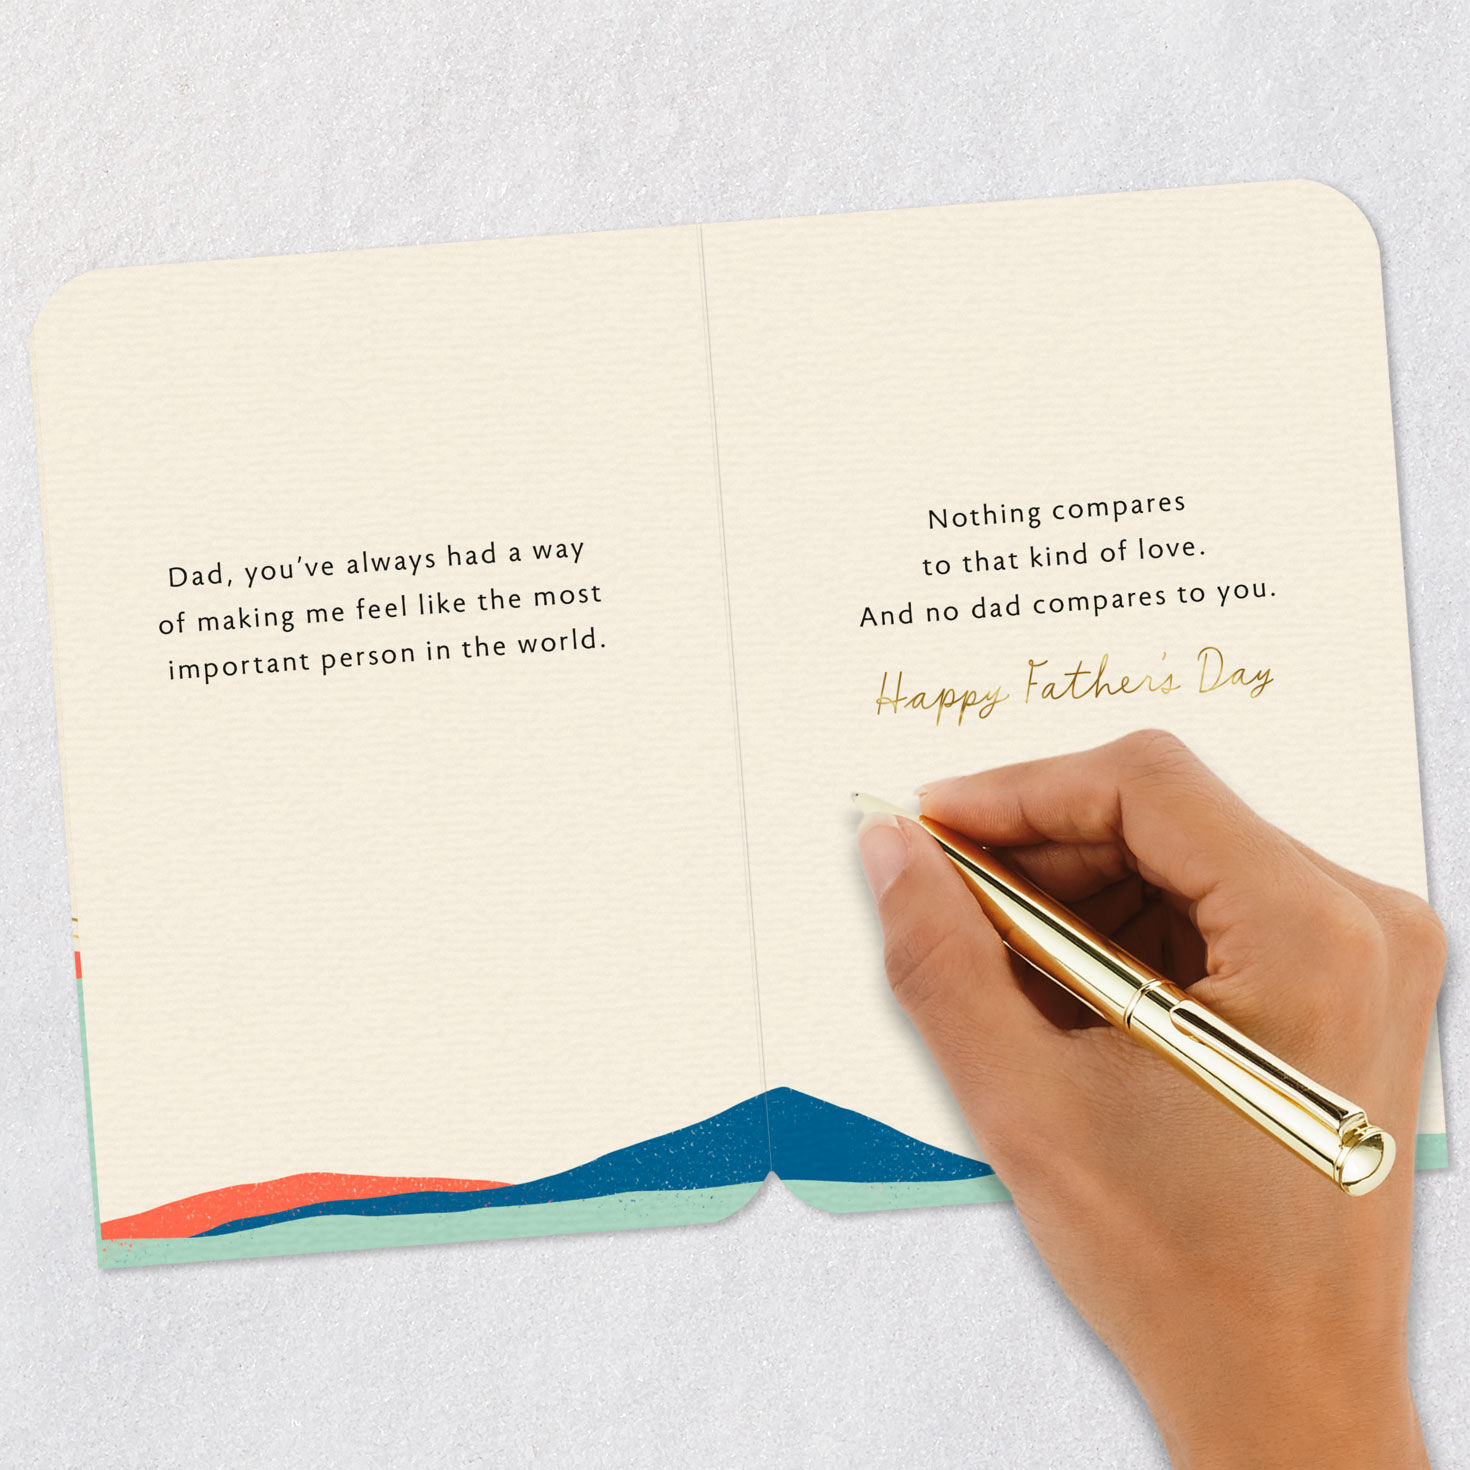 Dad, you've always had a way
of making me feel like the most
important person in the world.
Nothing compares
to that kind of love.
And no dad compares to you.
Happy Father's Day